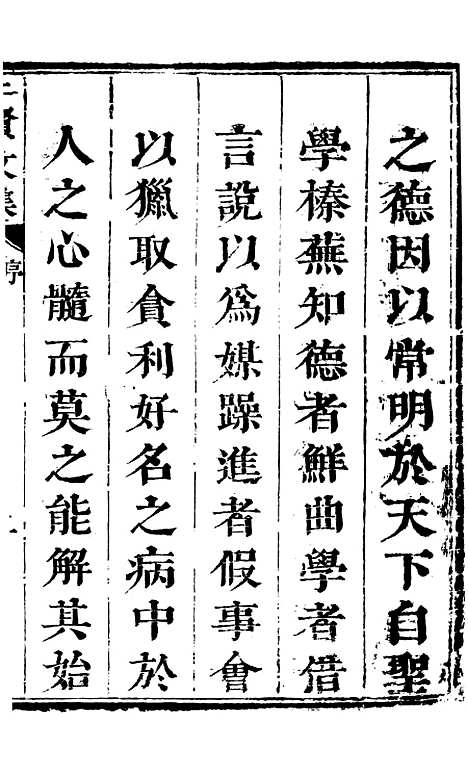 之德因以常明於天下自聖
學榛蕪知德者鮮曲學者借
言說以為媒躁進者假事會
以獵取貪利好名之病中於
人之心髓而莫之能解其始
賢文集
序